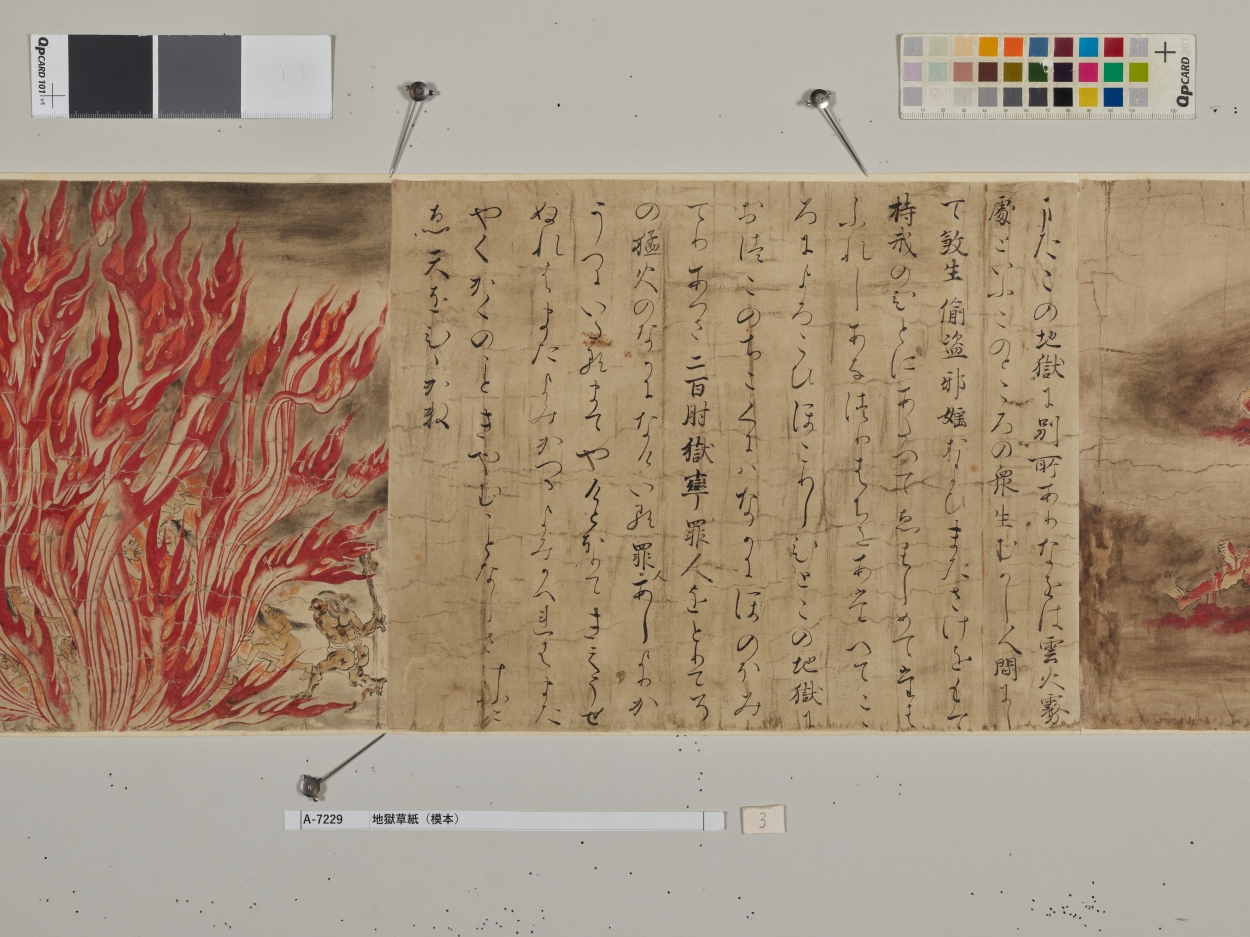 またこの地獄に別所ありなをは雲火霧
處といふこのところの衆生むかし人間に
て敦生偸盗邪婬おこなひまたさけをもて
持戒のひとにあたへて
ふれしある
ろによろこひほこりしひとこの地獄に
おつこのちこくにはなかにほのかみ
てりあつさ二百肘獄率罪人をとりてこ
の猛火のなかになけいる罪人あしよりか
うへにいたるまてやけとをりてきえうせ
ぬれはまたよみかへるよみかへれはまた
やくかくのことききやむことなしさけふこ
ゑ天をひゝかす
A-7229 地獄草紙（模本）
3
QPCARD 101 v4
QPCARD 201